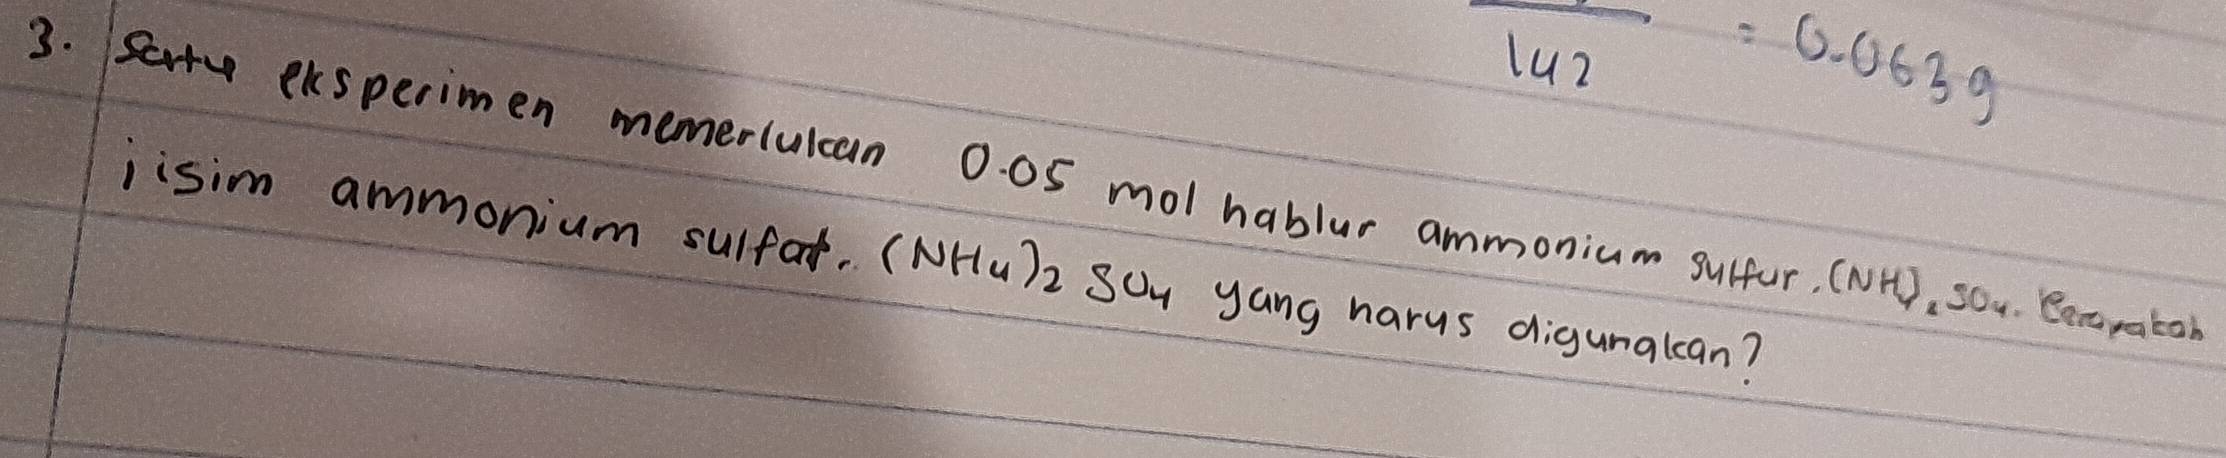 142 = 0.063g
3. Satu eksperimen memerlukan 0.05 mol hablur ammonium sulfur. (NH4)2 SO4. Berapakah
jisim ammonium sulfat. (NH4)2 SO4 yang harus digunakan?